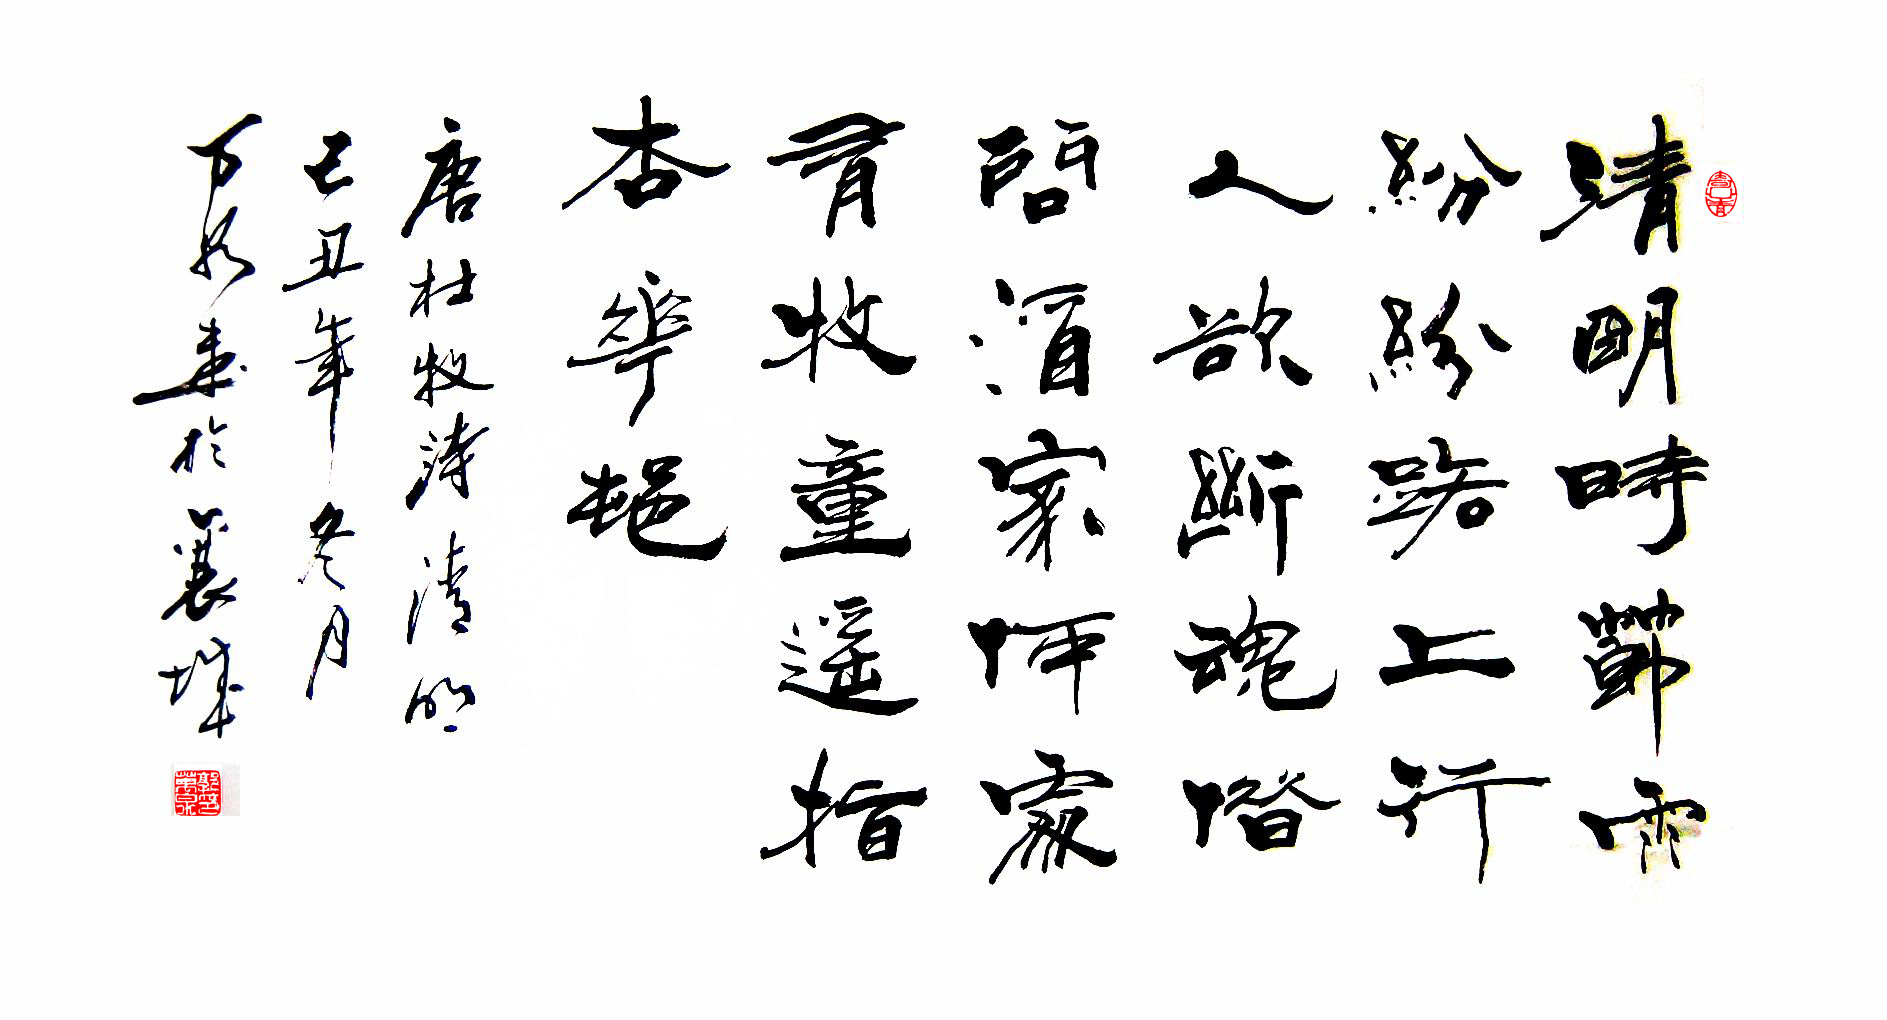 清明時節雨
紛紛路上行
人欲斷魂借
問酒家何處
有牧童遙指
杏花邨
唐杜牧詩清明
己丑年冬月
万泉書於襄城